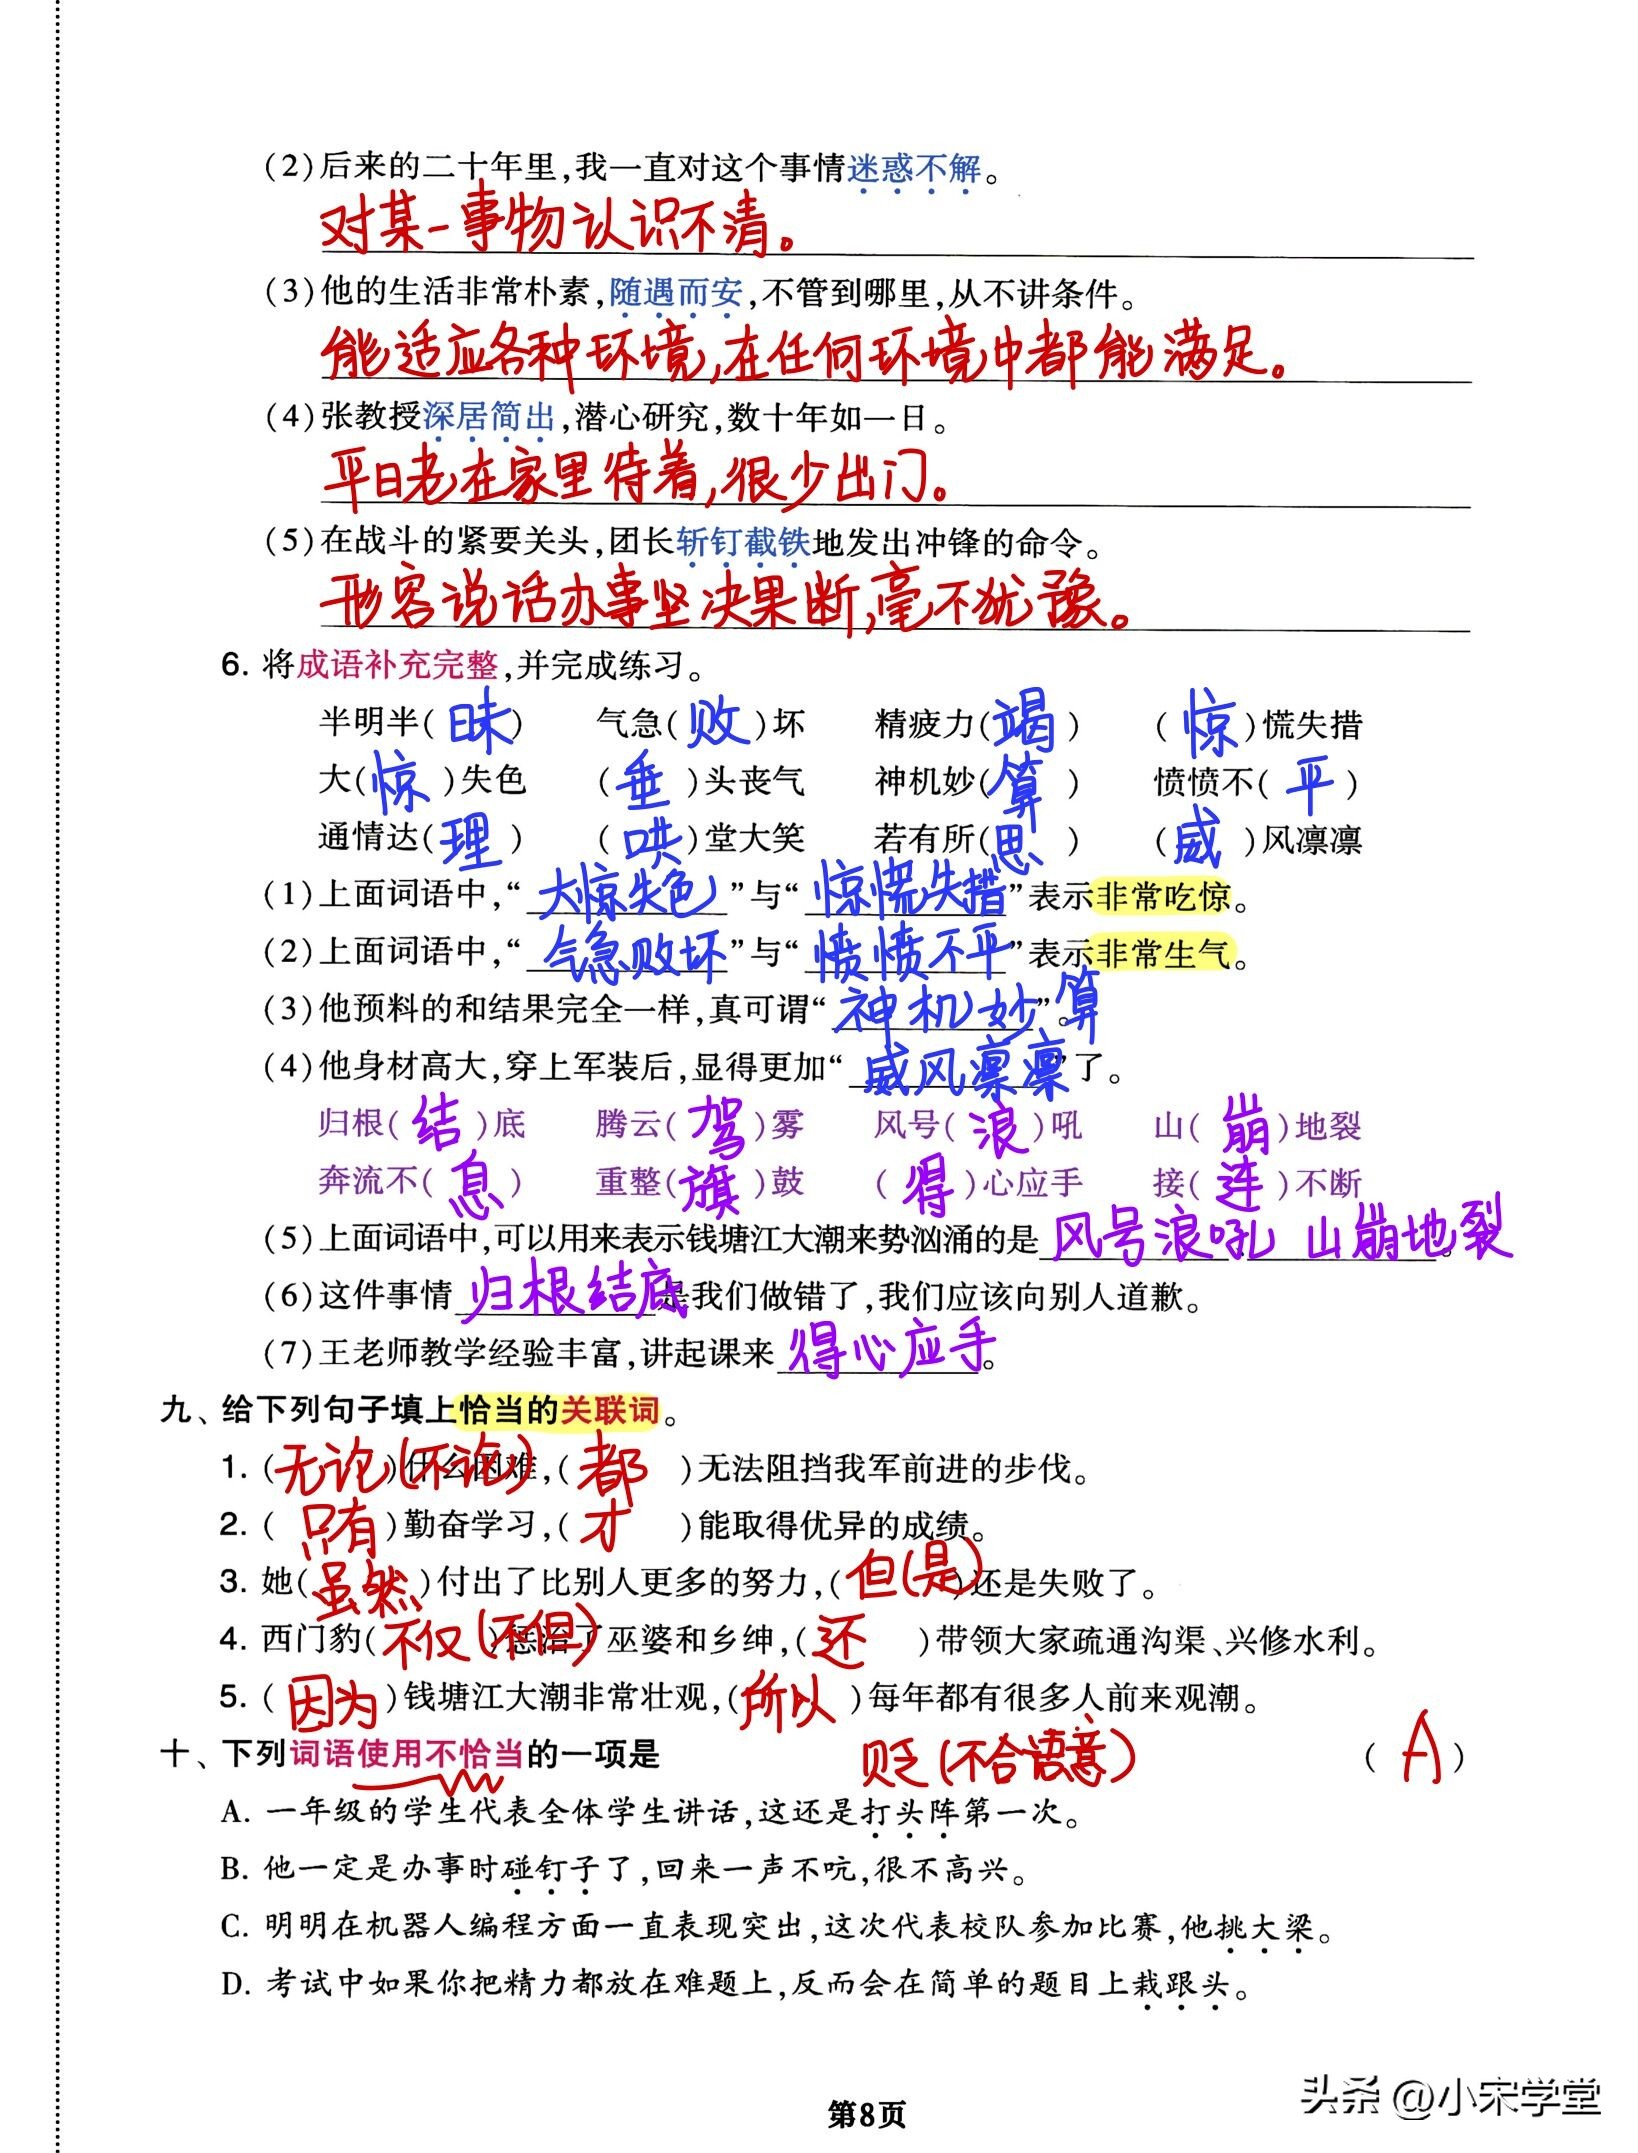 (2)后来的二十年里,我一直对这个事情迷惑不解。
对某一事物认识不清。
(3)他的生活非常朴素,随遇而安,不管到哪里,从不讲条件。
能适应各种环境,在任何环境中都能满足。
(4)张教授深居简出,潜心研究,数十年如一日。
平日老在家里待着,很少出门。
(5)在战斗的紧要关头,团长斩钉截铁地发出冲锋的命令。
形容说话办事坚决果断,毫不犹豫。
6. 将成语补充完整,并完成练习。
半明半(昧) 气急(败)坏 精疲力(竭) (惊)慌失措
大(惊)失色 (垂)头丧气 神机妙(算) 愤愤不(平)
通情达(理) (哄)堂大笑 若有所(思) (威)风凛凛
(1)上面词语中,“大惊失色”与“惊慌失措”表示非常吃惊。
(2)上面词语中,“气急败坏”与“愤愤不平”表示非常生气。
(3)他预料的和结果完全一样,真可谓“神机妙算”。
(4)他身材高大,穿上军装后,显得更加“威风凛凛”了。
归根(结)底 腾云(驾)雾 风号(浪)吼 山(崩)地裂
奔流不(息) 重整(旗)鼓 (得)心应手 接(连)不断
(5)上面词语中,可以用来表示钱塘江大潮来势汹涌的是风号浪吼 山崩地裂。
(6)这件事情归根结底是我们做错了,我们应该向别人道歉。
(7)王老师教学经验丰富,讲起课来得心应手。
九、给下列句子填上恰当的关联词。
1. (无论(不论))什么困难,(都)无法阻挡我军前进的步伐。
2. (只有)勤奋学习,(才)能取得优异的成绩。
3. 她(虽然)付出了比别人更多的努力,(但(是))还是失败了。
4. 西门豹(不仅(不但))惩治了巫婆和乡绅,(还)带领大家疏通沟渠、兴修水利。
5. (因为)钱塘江大潮非常壮观,(所以)每年都有很多人前来观潮。
十、下列词语使用不恰当的一项是 (A)
贬(不合语意)
A. 一年级的学生代表全体学生讲话,这还是打头阵第一次。
B. 他一定是办事时碰钉子了,回来一声不吭,很不高兴。
C. 明明在机器人编程方面一直表现突出,这次代表校队参加比赛,他挑大梁。
D. 考试中如果你把精力都放在难题上,反而会在简单的题目上栽跟头。
第8页
头条 @小宋学堂